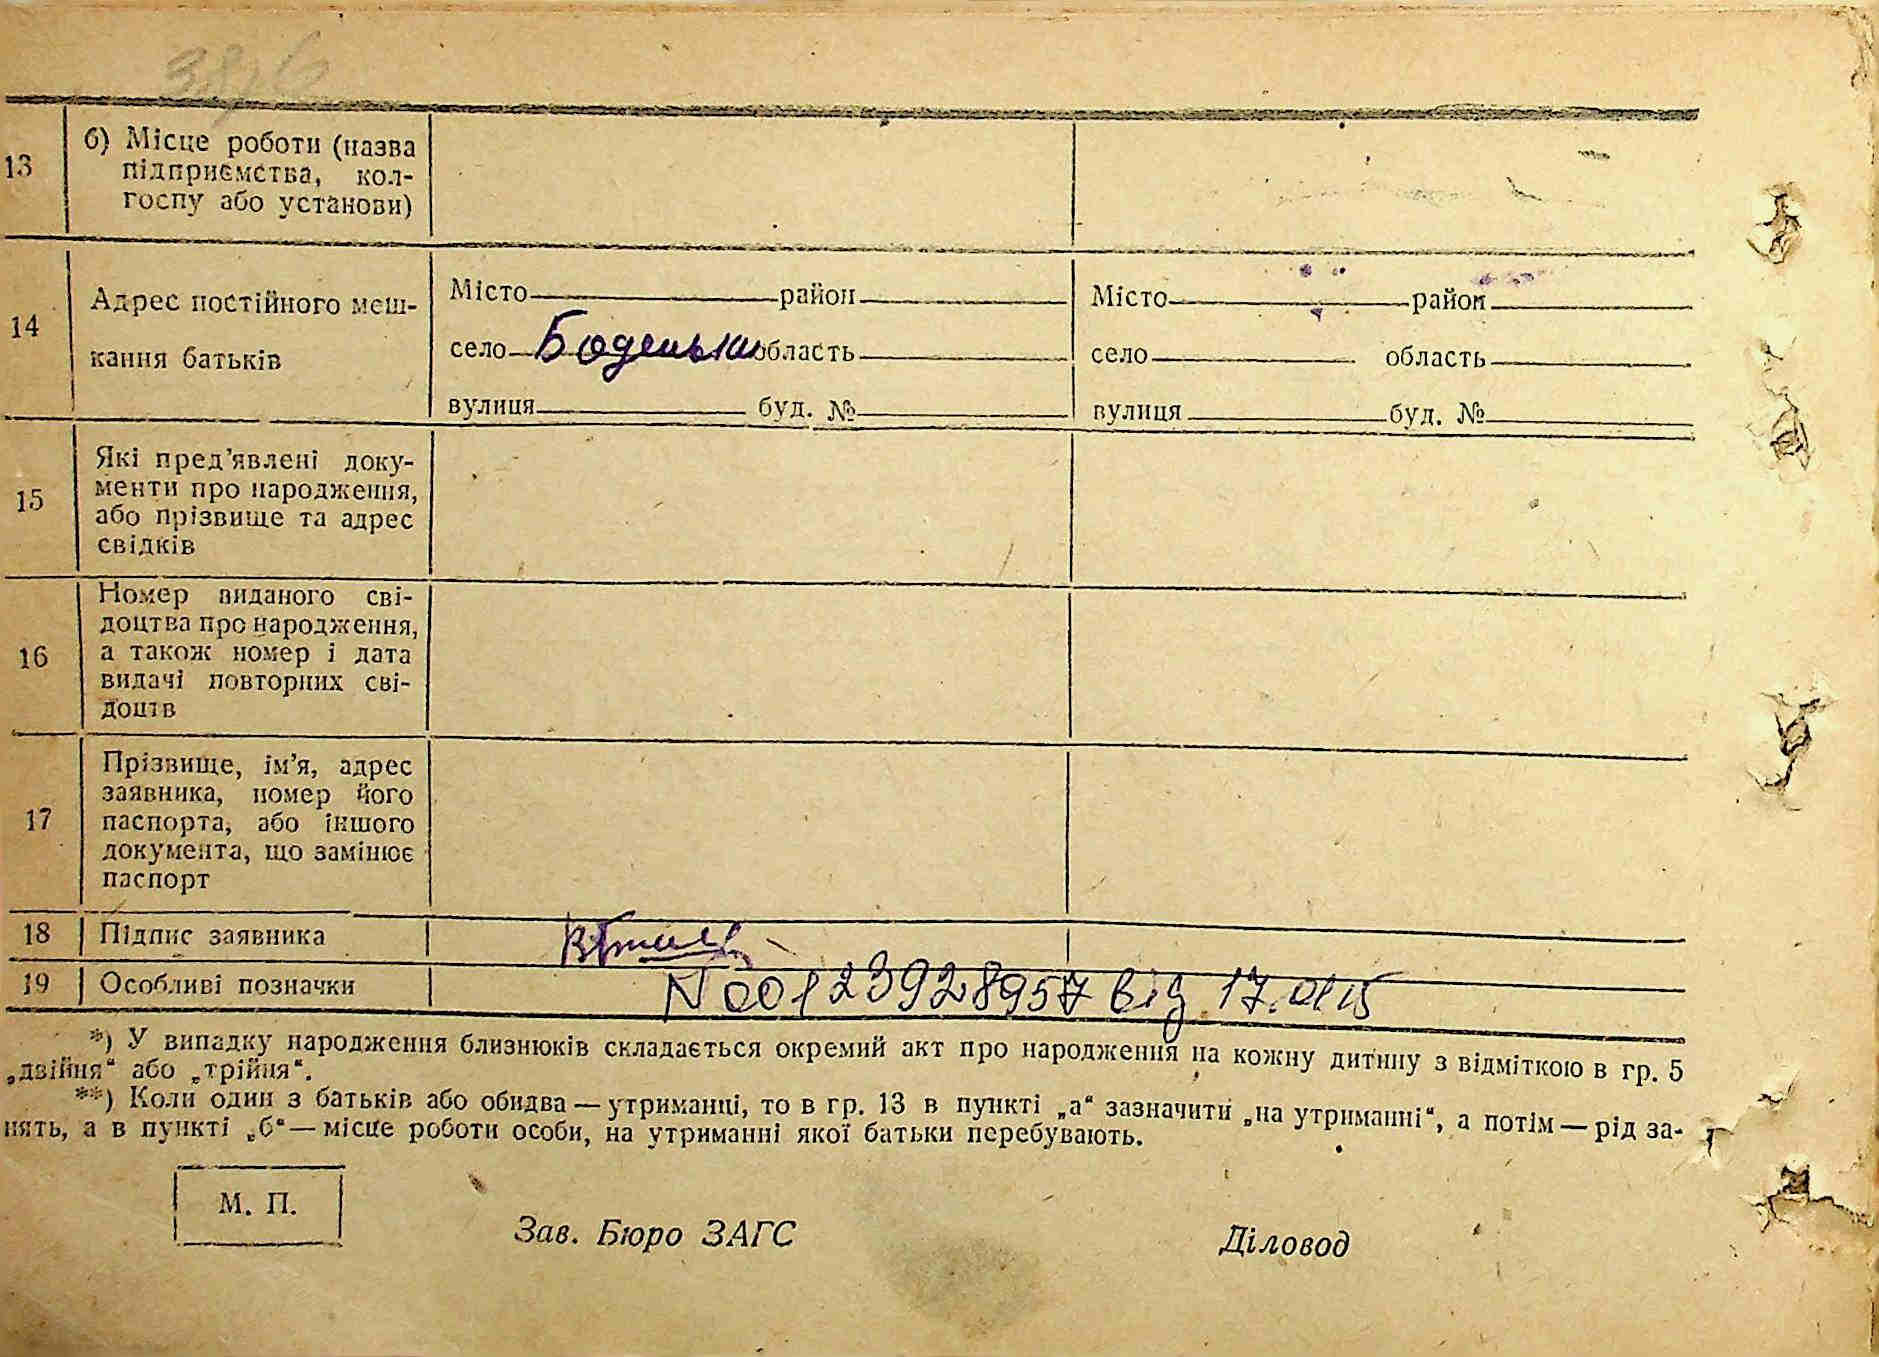 13 б) Місце роботи (назва
підприємства, кол-
госпу або установи)
14 Адрес постійного меш-
кання батьків
Місто район
село Боденьки область
вулиця буд. №
Місто район
село область
вулиця буд. №
15 Які пред’явлені доку-
менти про народження,
або прізвище та адрес
свідків
16 Номер виданого сві-
доцтва про народження,
а також номер і дата
видачі повторних сві-
доцтв
17 Прізвище, ім’я, адрес
заявника, номер його
паспорта, або іншого
документа, що замінює
паспорт
18 Підпис заявника
19 Особливі позначки N 00123928957 від 17.01.15
*) У випадку народження близнюків складається окремий акт про народження на кожну дитину з відміткою в гр. 5
„двійня“ або „трійня“.
**) Коли один з батьків або обидва — утриманці, то в гр. 13 в пункті „а“ зазначити „на утриманні“, а потім — рід за-
нять, а в пункті „б“ — місце роботи особи, на утриманні якої батьки перебувають.
М. П.
Зав. Бюро ЗАГС Діловод